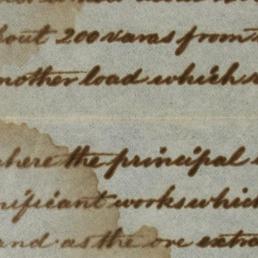 bout 200 varas from
nother load which
where the principal
nificant works which
and as the ore extra